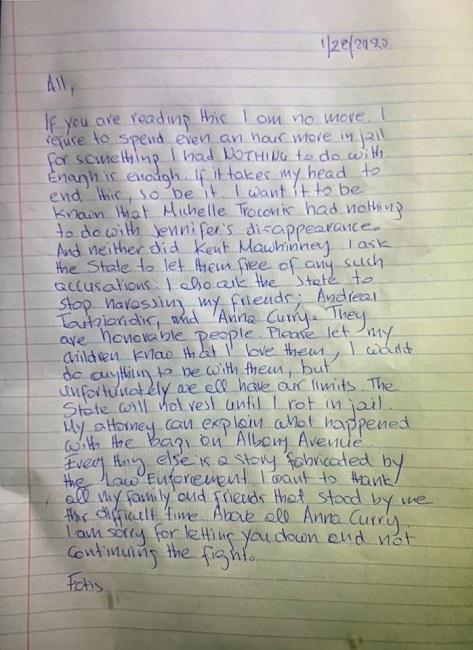 1/28/2020
All,
If you are reading this I am no more. I
refuse to spend even an hour more in jail
for something I had NOTHING to do with.
Enough is enough. If it takes my head to
end this, so be it. I want it to be
known that Michelle Troconis had nothing
to do with Jennifer's disappearance.
And neither did Kent Mawhinney. I ask
the State to let them free of any such
accusations. I also ask the State to
stop harassing my friends, Andreas
Toutziaridis, and Anna Curry. They
are honorable people. Please let my
children know that I love them, I would
do anything to be with them, but
unfortunately we all have our limits. The
State will not rest until I rot in jail.
My attorney can explain what happened
with the bags on Albany Avenue.
Every thing else is a story fabricated by
the Law Enforcement. I want to thank
all my family and friends that stood by me
this difficult time. Above all Anna Curry.
I am sorry for letting you down and not
continuing the fight.
Fotis